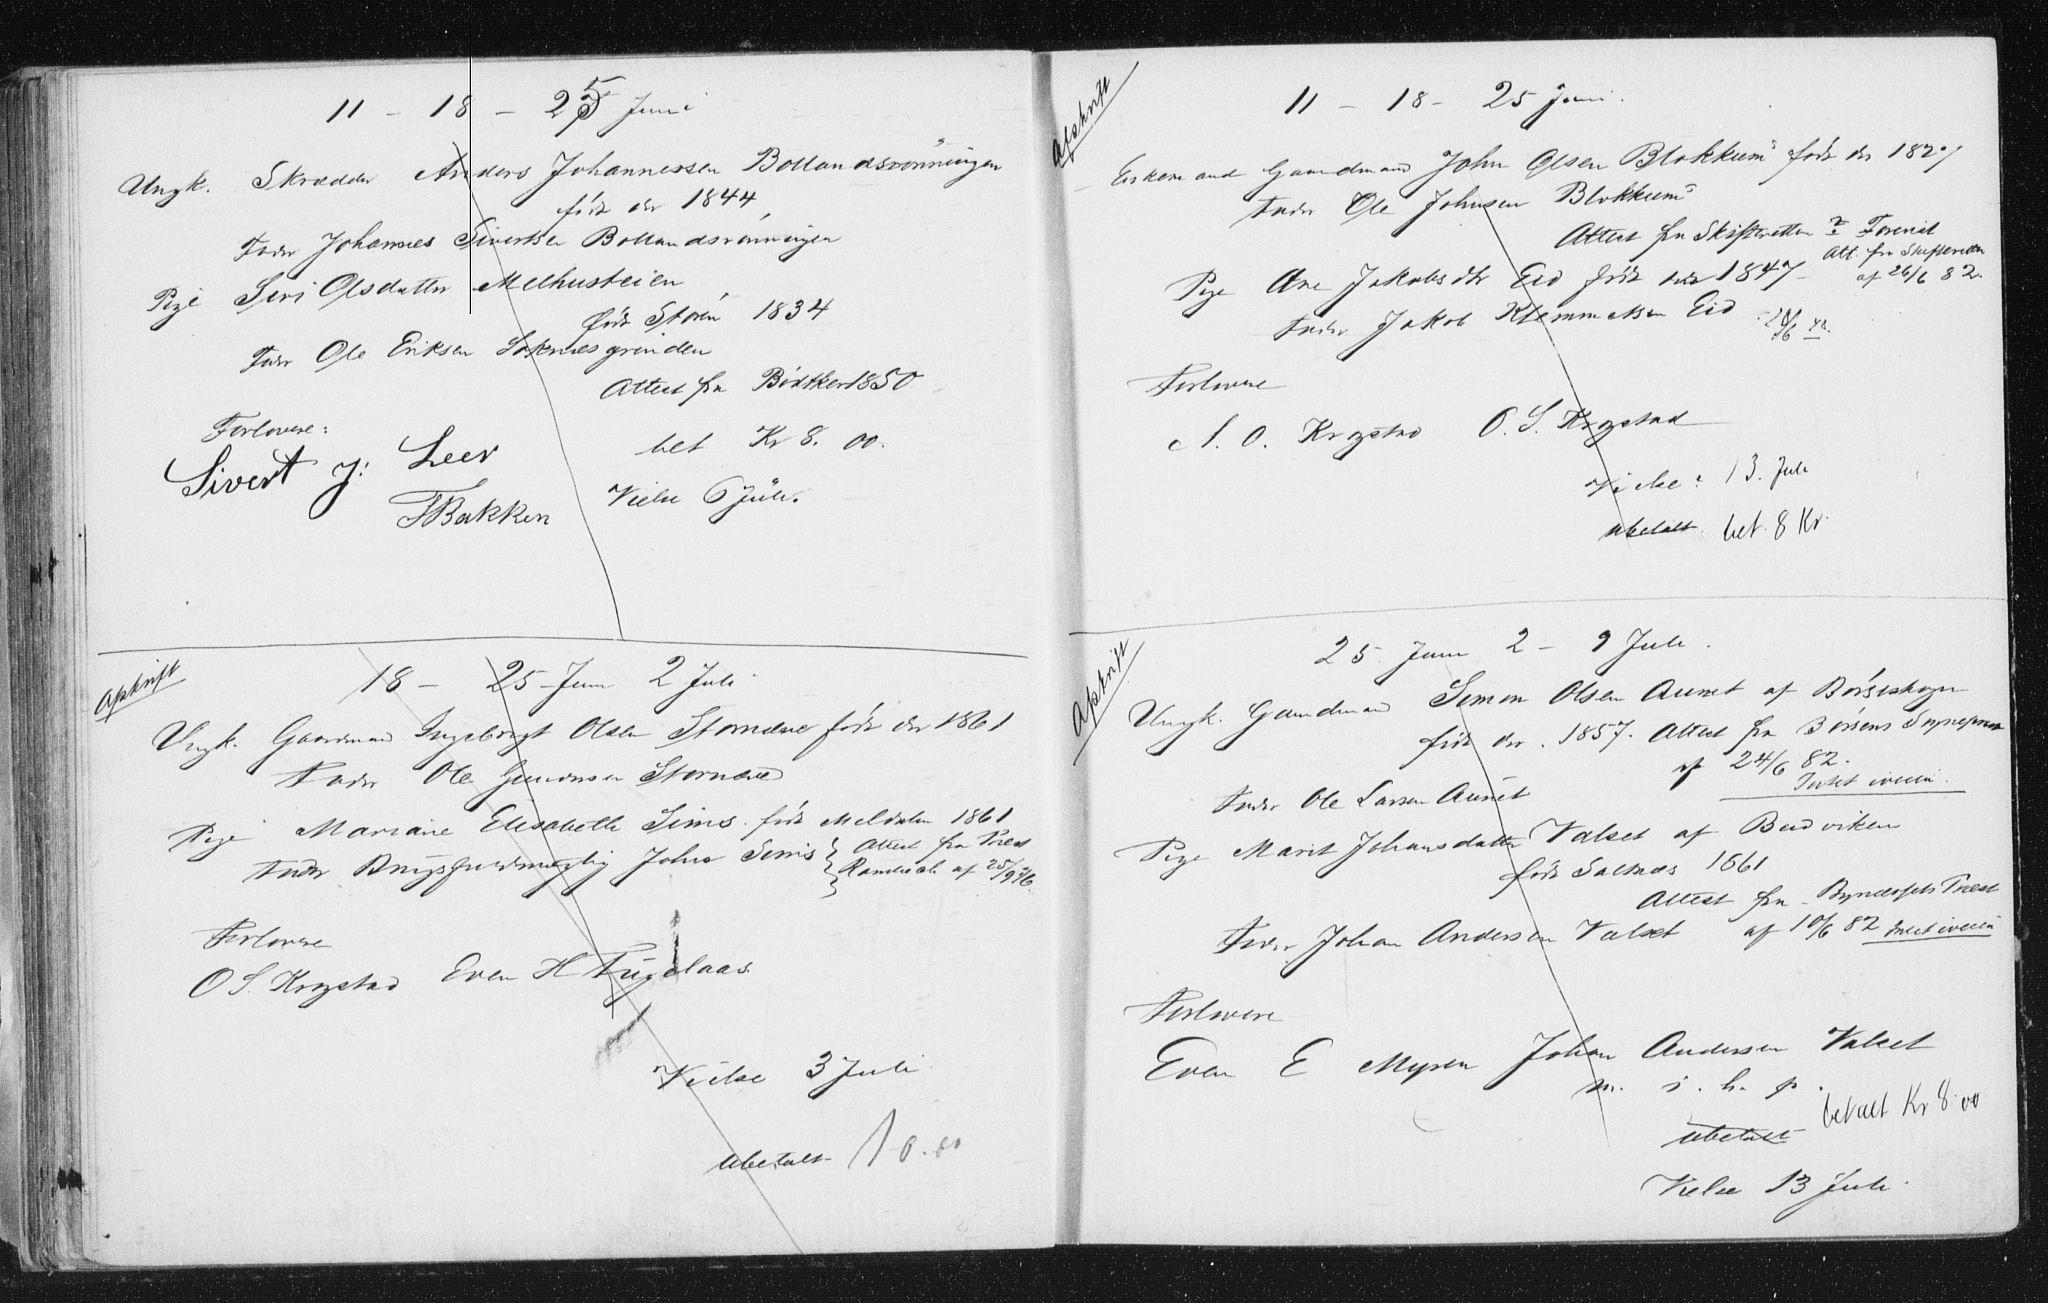 11 - 18 - 25 Juni
Ungk. Skrædder Anders Johannessen Bollandsrønningen
født der 1844
Fader Johannes Sivertsen Bollandsrønningen
Pige Siri Olsdatter Melhusteien
født Støren 1834
Fader Ole Eriksen Soknesgrinden
Attest fra Bødtker 1850
Forlovere:
bet Kr 8. 00.
Sivert J: Leer
FBakken
Vielse 6 Juli.
Afskrift
18 - 25 Juni 2 Juli
Ungk. Gaardmand Ingebrigt Olsen født der 1861
Fader Ole
Pige Mariane Elisabeth Sims født Meldalen 1861
Fader John Sims
Attest fra Præst
af 25/9 76.
Forlovere
O S. Krogstad Even H Fuglaas
Vielse 3 Juli
Ubetalt 10.00
Afskrift
11 - 18 - 25 Juni.
Enkemand Gaardmand John Olsen Blokkum født der 1827
Fader Ole Johnsen Blokkum
Attest fra Skifteretten
Att. fra Skifteretten
af 26/6 82.
Pige Ane Jakobsdtr Eid født 1847
Fader Jakob Klemmetsen Eid
Forlovere
N. O. Krogstad O. S. Krogstad
Vielse: 13. Juli
ubetalt. bet. 8 Kr.
Afskrift
25 Juni 2 - 9 Juli.
Ungk. Gaardmand Simon Olsen Aunet af Børseskogn
født der. 1857. Attest fra Børsens Sognepræst
af 24/6 82.
Intet iveien.
Fader Ole Larsen Aunet
Pige Marit Johansdatter Valset af Budviken
født Saltnæs 1861
Attest fra Bynesets Præst
Fader Johan Andersen Valset af 10/6 82 Intet iveien
Forlovere
Even E Myren Johan Andersen Valset
m. i. h. p.
betalt Kr 8.00
ubetalt
Vielse 13 Juli.